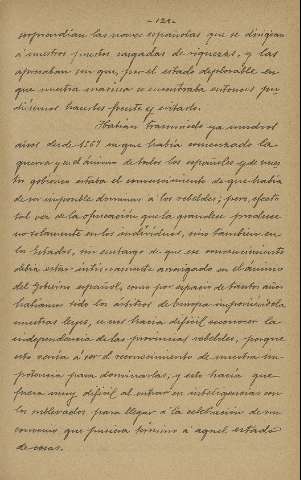 - 121 -
sorprendian las naves españolas que se dirigian
á nuestros puertos cargadas de riquezas, y las
apresaban sin que, por el estado deplorable en
que nuestra marina se encontraba entonces pu-
diésemos hacerles frente y evitarlo.
Habian transcurrido ya muchos
años desde 1567 en que habia comenzado la
guerra y en el ánimo de todos los españoles y de nues
tro gobierno estaba el convencimiento de que habia
de ser imposible dominar á los rebeldes; pero, efecto
tal vez de la ofuscación que la grandeza produce
no solamente en los individuos, sino tambien en
los Estados, sin embargo de que ese convencimiento
debia estar intimamente arraigado en el ánimo
del Gobierno español, como por espacio de tantos años
habiamos sido los árbitros de Europa imponiéndola
nuestras leyes, se nos hacia dificil reconocer la
independencia de las provincias rebeldes, porque
esto venia á ser el reconocimiento de nuestra im-
potencia para dominarlas, y esto hacia que
fuera muy dificil al entrar en inteligencias con
los sublevados para llegar á la celebración de un
convenio que pusiera término á aquel estado
de cosas.